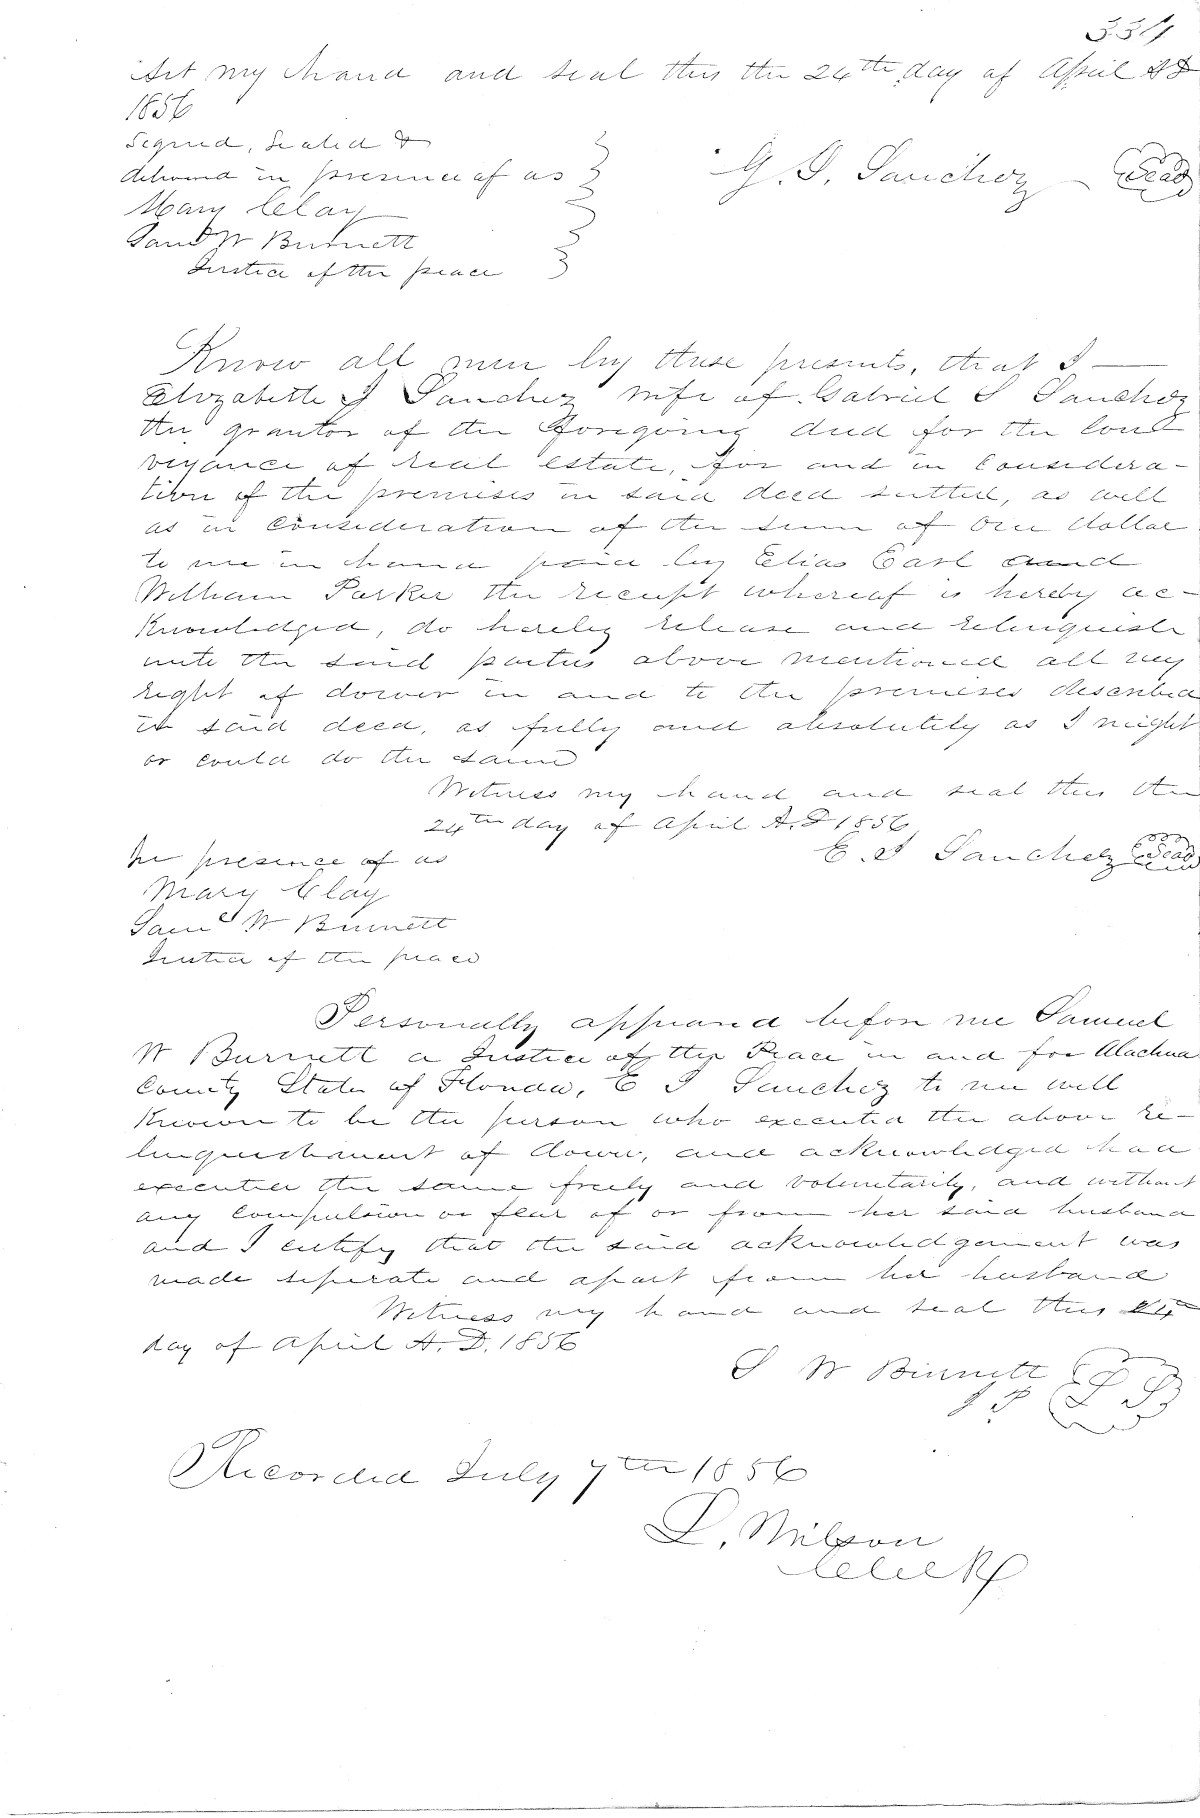 Set my hand and seal this the 24th day of April AD
1856
Signed, Sealed &
delivered in presence of us
G. S. Sanchez Seal
Mary Clay
Saml W Burnett
Justice of the peace
Know all men by these presents, that I
Elizabeth J Sanchez wife of Gabriel S Sanchez
the grantor of the foregoing deed for the con
veyance of real estate, for and in considera-
tion of the premises in said deed settled, as well
as in consideration of the sum of One dollar
to me in hand paid by Elias Earl and
William Parker the receipt whereof is hereby ac-
knowledged, do hereby release and relinquish
unto the said parties above mentioned all my
right of dower in and to the premises described
in said deed, as fully and absolutely as I might
or could do the same
Witness my hand and seal this the
24th day of April A.D 1856
E. J Sanchez Seal
In presence of us
Mary Clay
Saml W Burnett
Justice of the peace
Personally appeared before me Samuel
W Burnett a Justice of the Peace in and for Alachua
County State of Florida, E J Sanchez to me well
known to be the person who executed the above re-
linquishment of dower, and acknowledged had
executed the same freely and voluntarily, and without
any compulsion or fear of or from her said husband
and I certify that the said acknowledgement was
made seperate and apart from her husband
Witness my hand and seal this 24th
day of April A.D. 1856
S W Burnett
J P L S
Recorded July 7th 1856
L. Wilson
Clerk